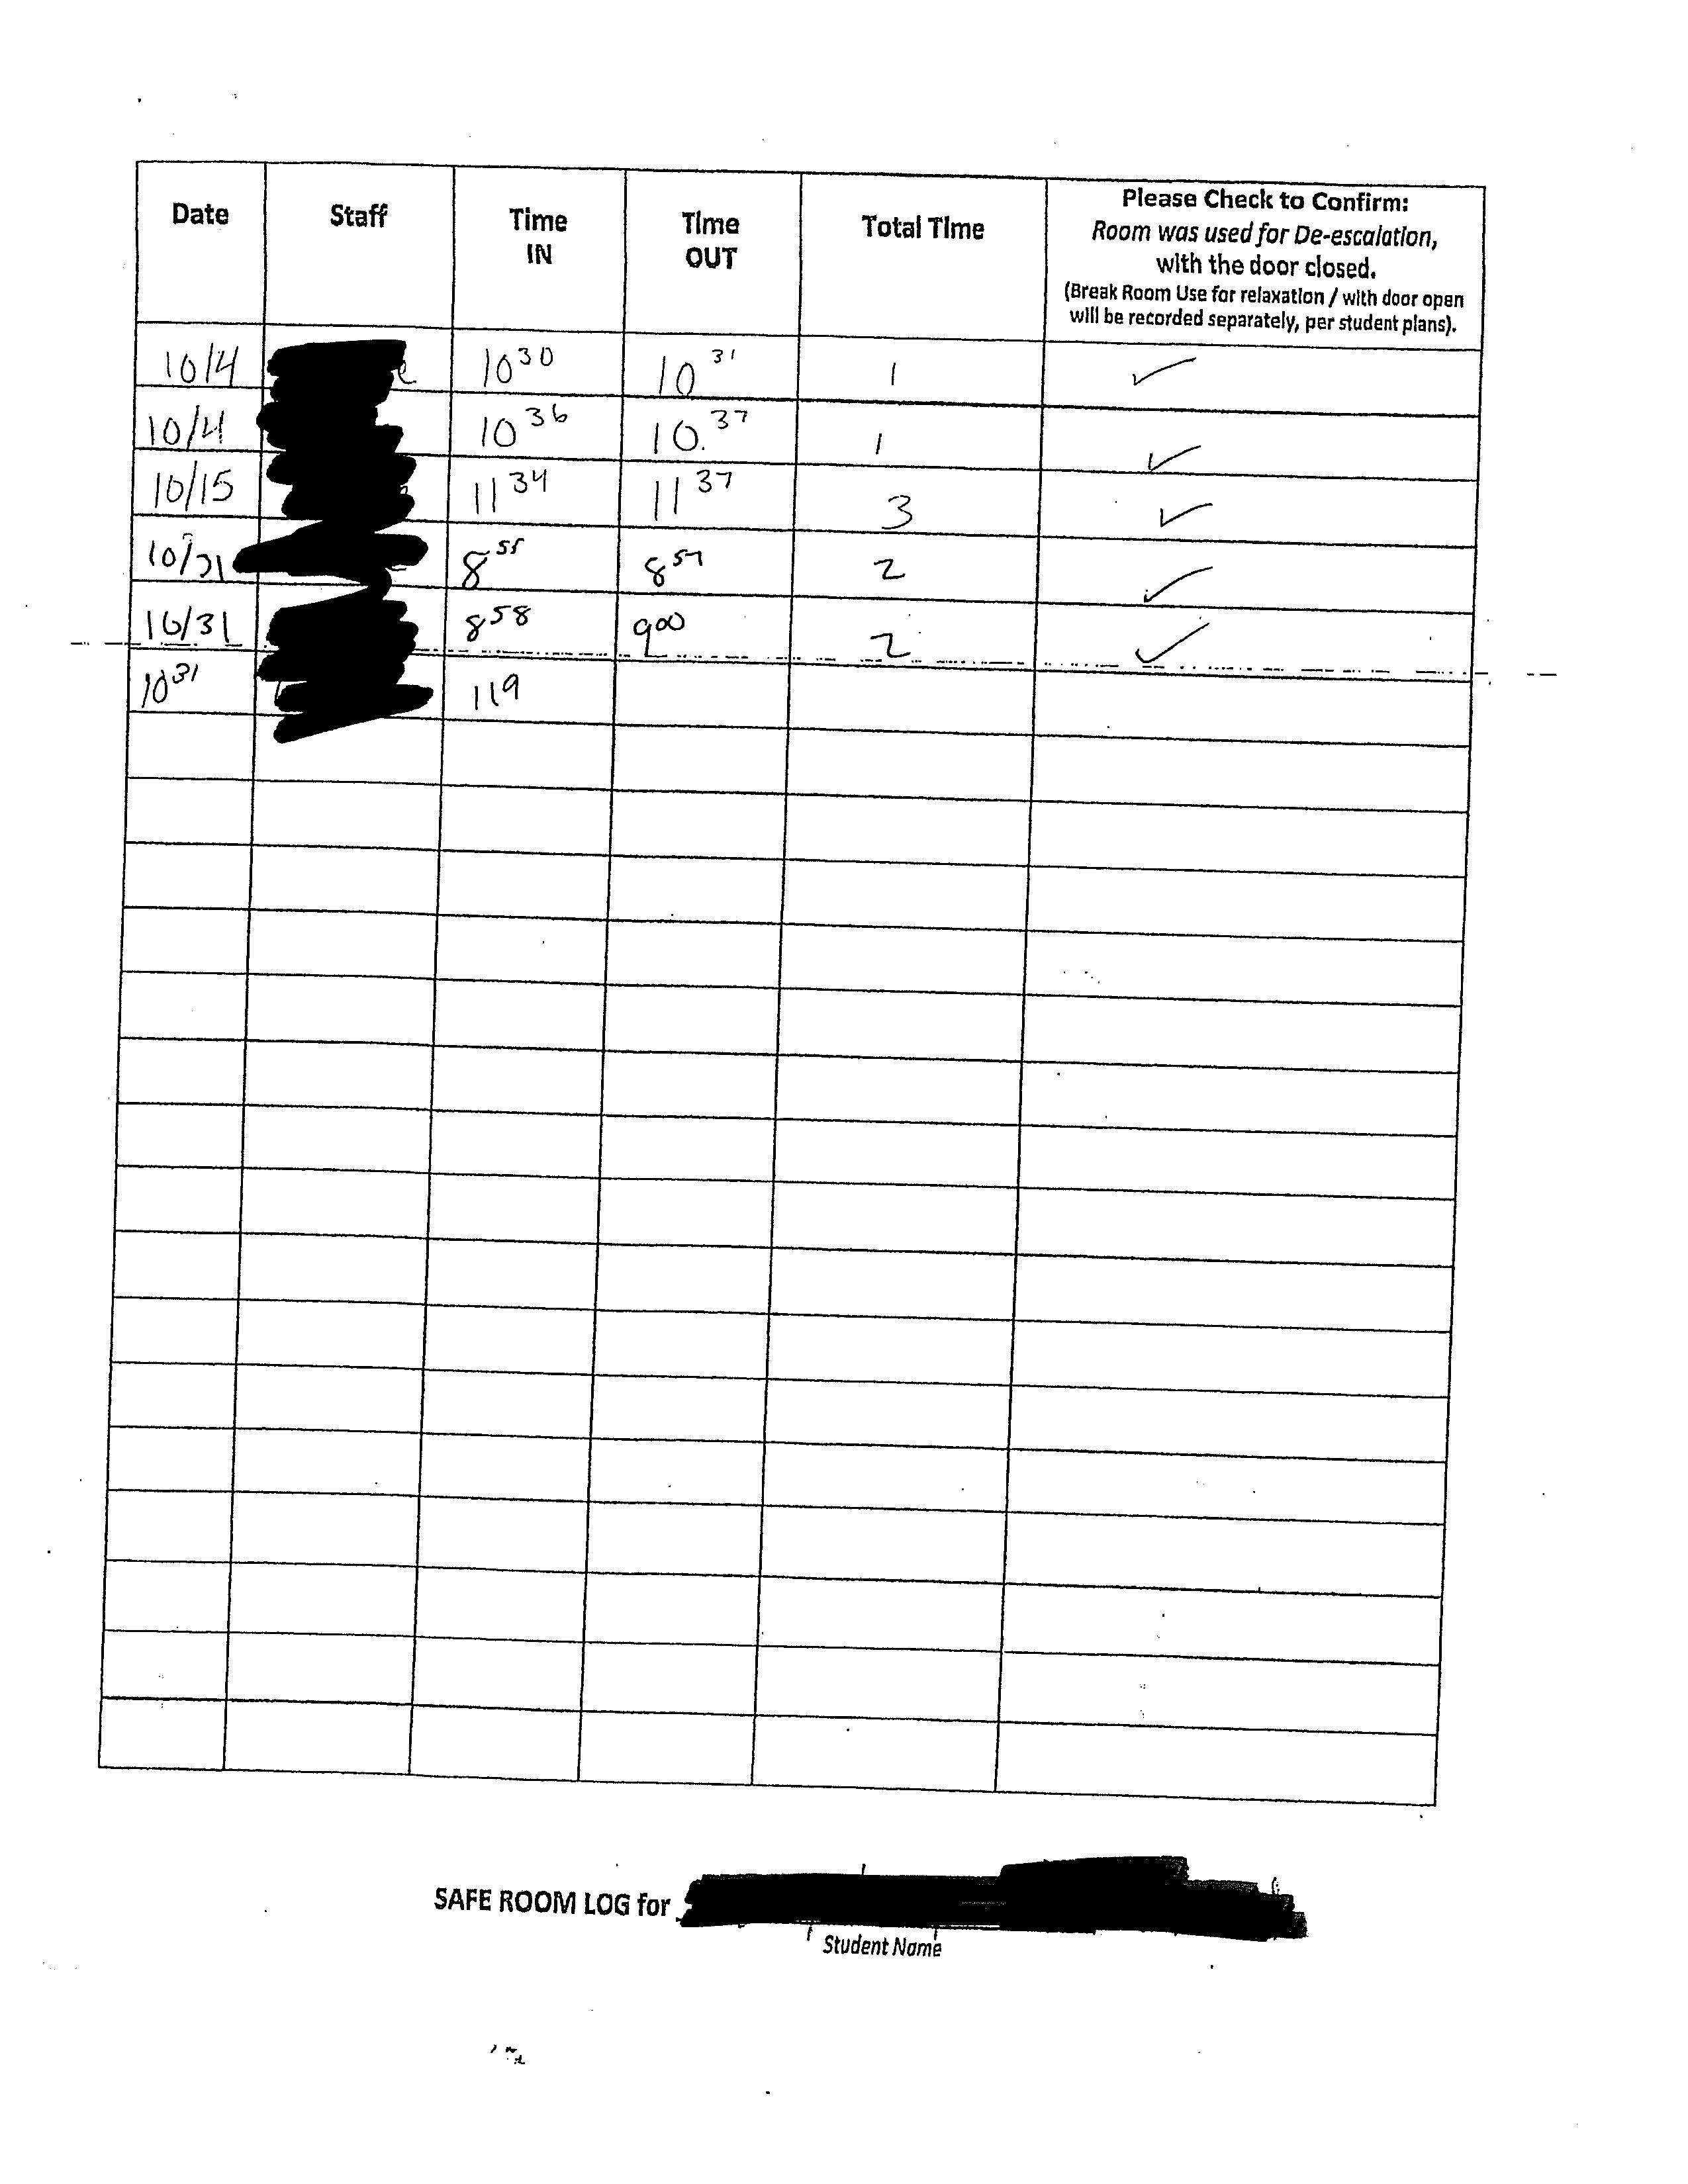 Date Staff Time IN Time OUT Total Time Please Check to Confirm:
Room was used for De-escalation,
with the door closed.
(Break Room Use for relaxation / with door open
will be recorded separately, per student plans).
10/4 10 30 10 31 1 ✓
10/4 10 36 10. 37 1 ✓
10/15 11 34 11 37 3 ✓
8 55 8 57 2 ✓
10/31 8 58 9 00 2 ✓
10 31 1 19
SAFE ROOM LOG for
Student Name